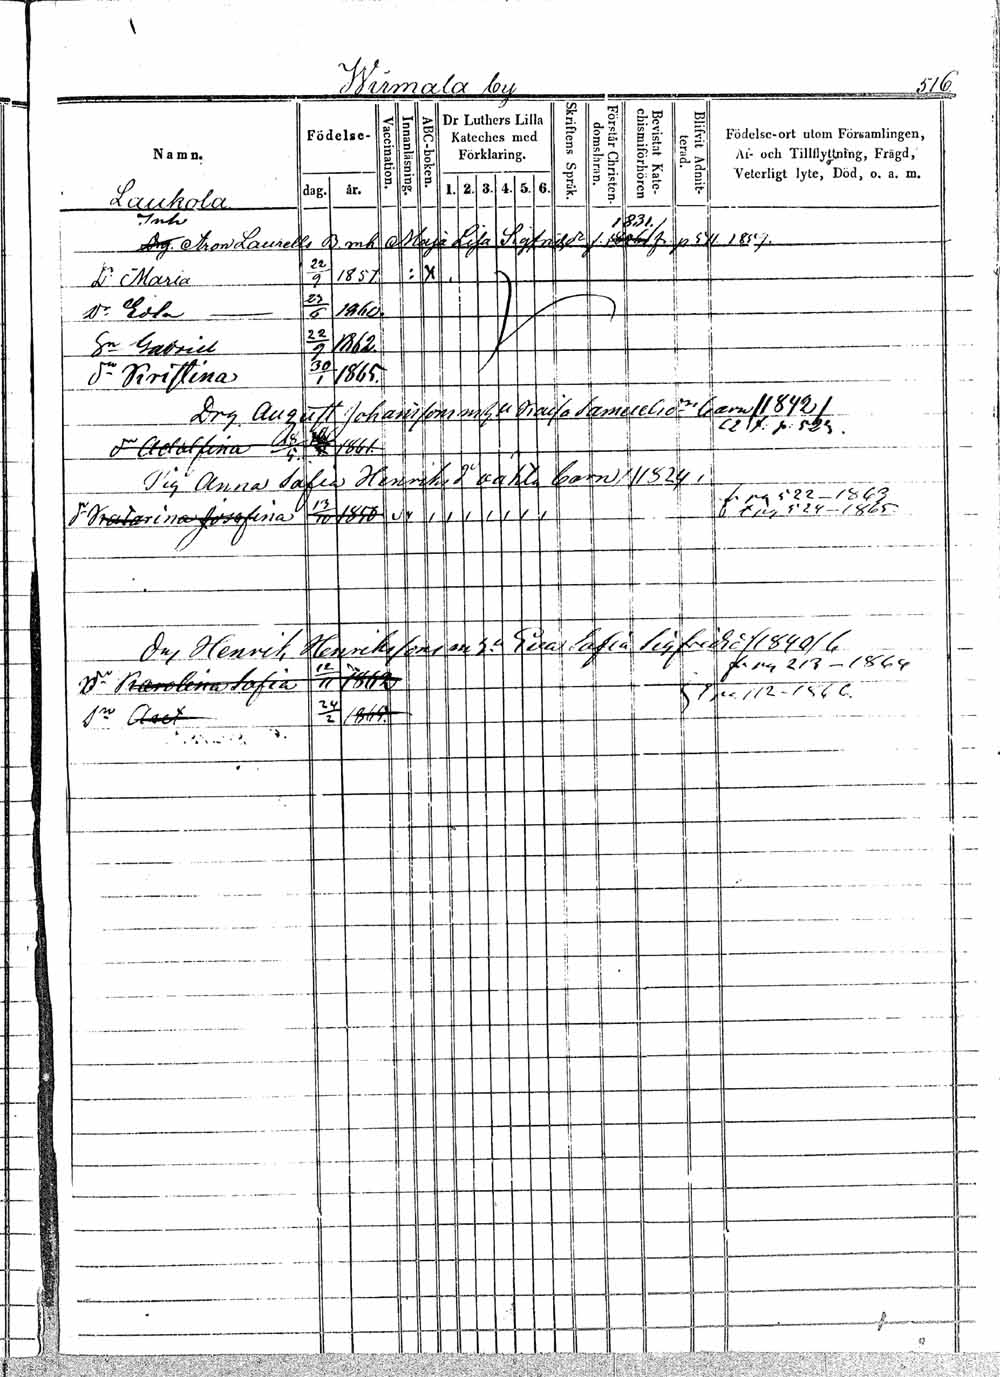 Wirmala by 516
Namn.
Födelse-
dag. år.
Vaccination.
Innanläsning.
ABC-boken.
Dr Luthers Lilla Kateches med Förklaring.
1. 2. 3. 4. 5. 6.
Skriftens Språk.
Förstår Christendomsläran.
Bevistat Katechismiförhören
Blifvit Admitterad.
Födelse-ort utom Församlingen, Af- och Tillflyttning, Frägd, Veterligt lyte, Död, o. a. m.
Laukola
Inh 1831.
Drg. Aron Laurells B. mh Maja Lisa Sigfridsdr
Dr Maria 22/9 1857
Dr Eva 23/6 1860.
Sn Gabriel 22/9 1862.
Dr Kristina 30/1 1865.
Drg August Johanssons m h u Kaisa Samuelsdrs barn /1842/
p. 523.
dr Adolfina 1861.
Pig Anna Sofia Henriksdr barn /1824
fr pg 522 – 1863
dr Katarina Josefina 13/10 1850 t pg 524 – 1865
Drg Henrik Henrikssons m h u Eva Sofia Sigfridsdr /1840/ b
fr pg 213 – 1864
Dr Karolina Sofia 12/11 1862
112 – 1866.
Sn 24/2 1865.